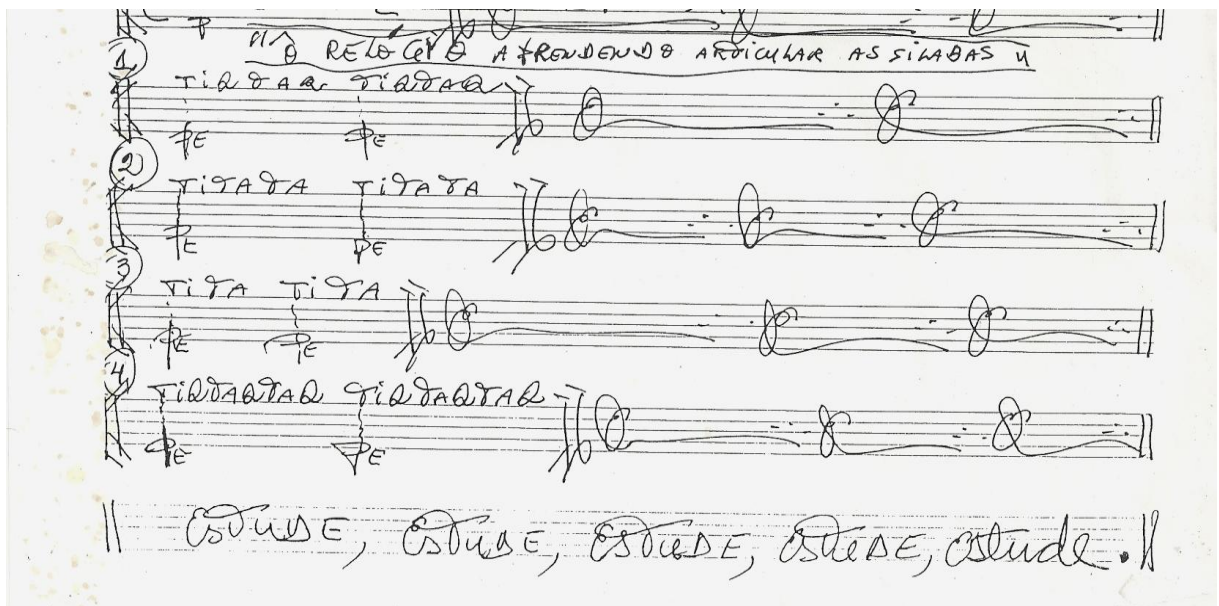 P
1
"O RELÓGIO APRENDENDO ARTICULAR AS SILABAS"
TIQTAQ TIQTAQ
PE PE
2
TITATA TITATA
PE PE
3
TITA TITA
PE PE
4
TIQTAQTAQ TIQTAQTAQ
PE PE
ESTUDE, ESTUDE, ESTUDE, ESTUDE, estude.